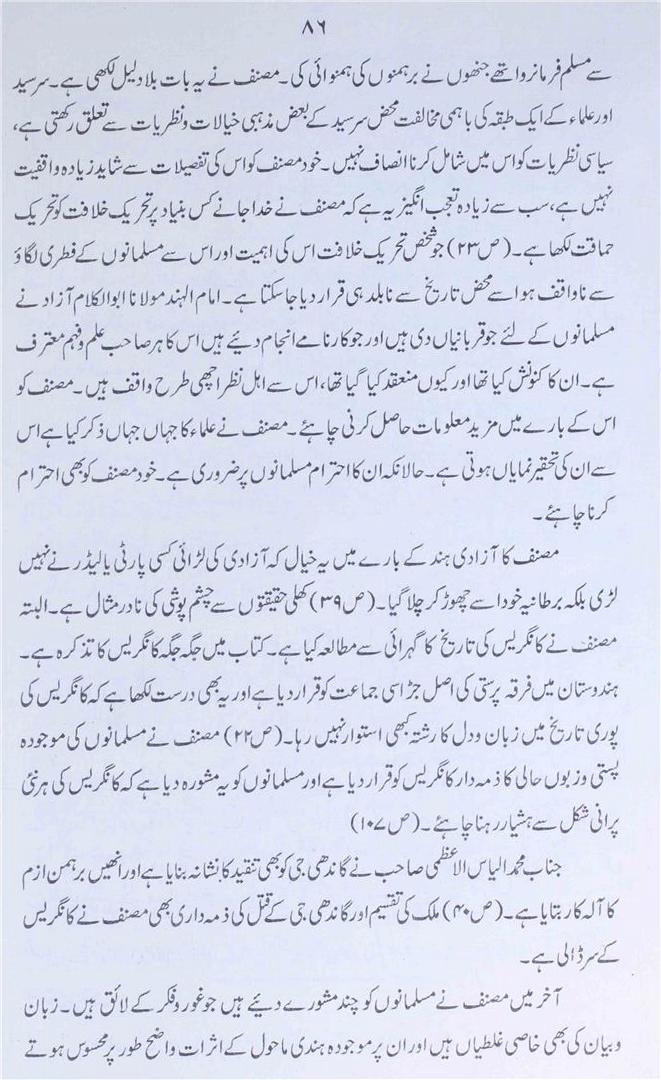 ۸۶
سے مسلم فرمانروا تھے جنھوں نے برہمنوں کی ہمنوائی کی۔ مصنف نے یہ بات بلا دلیل لکھی ہے۔ سرسید
اور علماء کے ایک طبقہ کی باہمی مخالفت محض سرسید کے بعض مذہبی خیالات و نظریات سے تعلق رکھتی ہے،
سیاسی نظریات کو اس میں شامل کرنا انصاف نہیں۔ خود مصنف کو اس کی تفصیلات سے شاید زیادہ واقفیت
نہیں ہے، سب سے زیادہ تعجب انگیز یہ ہے کہ مصنف نے خدا جانے کس بنیاد پر تحریک خلافت کو تحریک
حماقت لکھا ہے۔ (ص ۲۳) جو شخص تحریک خلافت اس کی اہمیت اور اس سے مسلمانوں کے فطری لگاؤ
سے ناواقف ہو اسے محض تاریخ سے نابلد ہی قرار دیا جاسکتا ہے۔ امام الہند مولانا ابوالکلام آزاد نے
مسلمانوں کے لئے جو قربانیاں دی ہیں اور جو کارنامے انجام دیئے ہیں اس کا ہر صاحب علم و فہم معترف
ہے۔ ان کا کنونشن کیا تھا اور کیوں منعقد کیا گیا تھا، اس سے اہل نظر اچھی طرح واقف ہیں۔ مصنف کو
اس کے بارے میں مزید معلومات حاصل کرنی چاہئے۔ مصنف نے علماء کا جہاں جہاں ذکر کیا ہے اس
سے ان کی تحقیر نمایاں ہوتی ہے۔ حالانکہ ان کا احترام مسلمانوں پر ضروری ہے۔ خود مصنف کو بھی احترام
کرنا چاہئے۔
مصنف کا آزادی ہند کے بارے میں یہ خیال کہ آزادی کی لڑائی کسی پارٹی یا لیڈر نے نہیں
لڑی بلکہ برطانیہ خود اسے چھوڑ کر چلا گیا۔ (ص ۳۹) کھلی حقیقتوں سے چشم پوشی کی نادر مثال ہے۔ البتہ
مصنف نے کانگریس کی تاریخ کا گہرائی سے مطالعہ کیا ہے۔ کتاب میں جگہ جگہ کانگریس کا تذکرہ ہے۔
ہندوستان میں فرقہ پرستی کی اصل جڑ اسی جماعت کو قرار دیا ہے اور یہ بھی درست لکھا ہے کہ کانگریس کی
پوری تاریخ میں زبان و دل کا رشتہ کبھی استوار نہیں رہا۔ (ص ۲۲) مصنف نے مسلمانوں کی موجودہ
پستی و زبوں حالی کا ذمہ دار کانگریس کو قرار دیا ہے اور مسلمانوں کو یہ مشورہ دیا ہے کہ کانگریس کی ہر نئی
پرانی شکل سے ہشیار رہنا چاہئے۔ (ص ۱۰۷)
جناب محمد الیاس الاعظمی صاحب نے گاندھی جی کو بھی تنقید کا نشانہ بنایا ہے اور انھیں برہمن ازم
کا آلہ کار بتایا ہے۔ (ص ۴۰) ملک کی تقسیم اور گاندھی جی کے قتل کی ذمہ داری بھی مصنف نے کانگریس
کے سر ڈالی ہے۔
آخر میں مصنف نے مسلمانوں کو چند مشورے دیئے ہیں جو غور و فکر کے لائق ہیں۔ زبان
و بیان کی بھی خاصی غلطیاں ہیں اور ان پر موجودہ ہندی ماحول کے اثرات واضح طور پر محسوس ہوتے